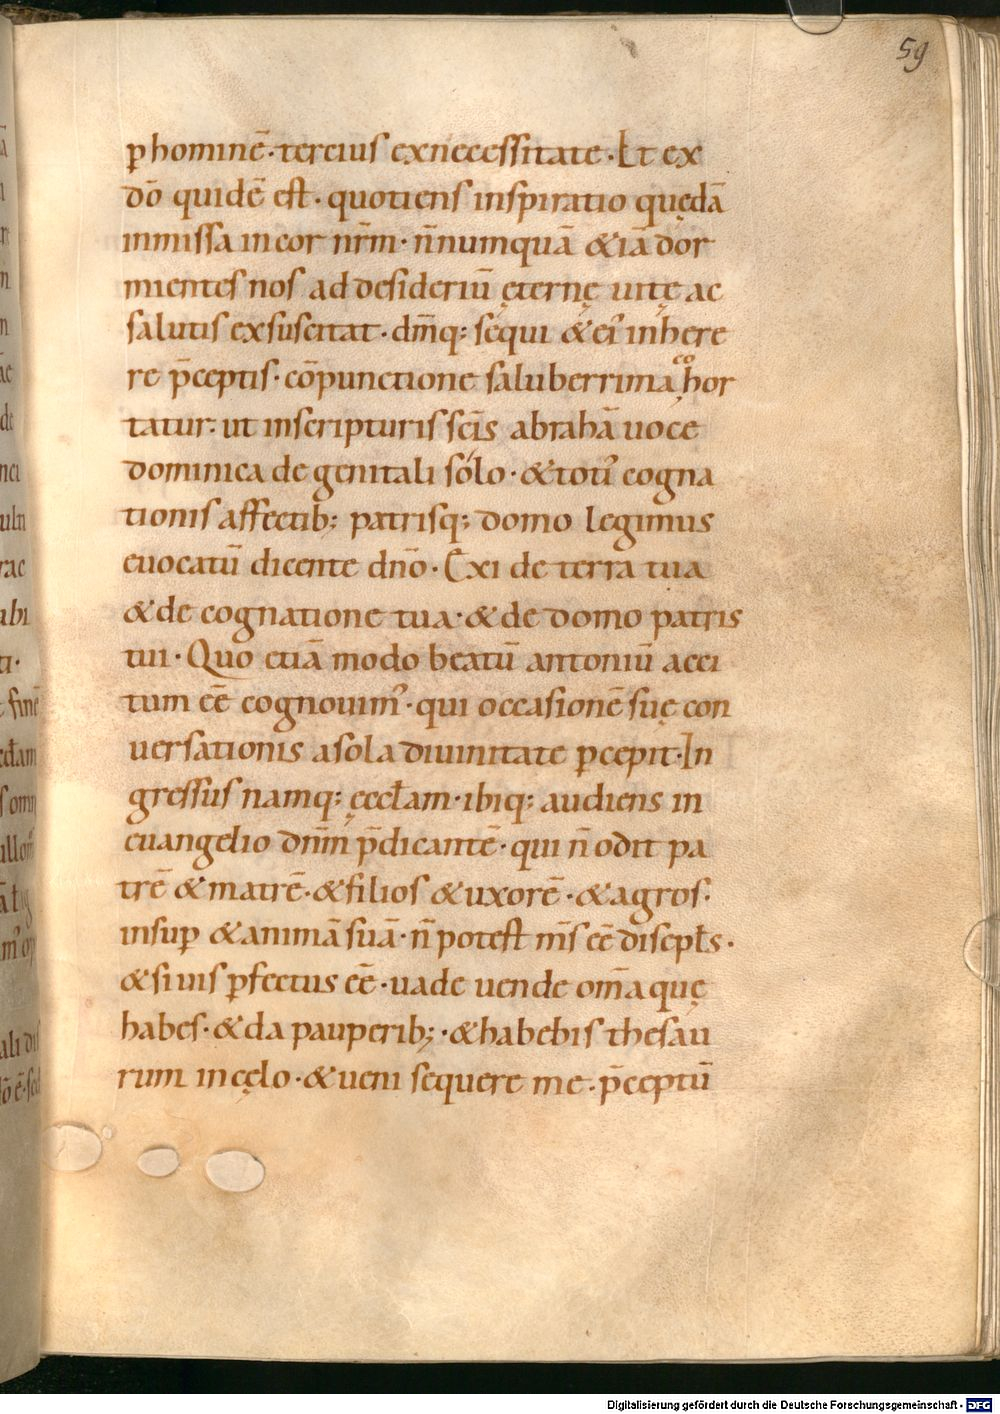 59
ꝑ hominē · tercius ex necessitate · Et ex
dō quidē est · quotiens inspiratio quędā
inmissa in cor nr̄m · n̄numquā &iā dor
mientes nos ad desideriū ęternę uitę ac
salutis exsuscitat · dm̄q; sequi & ei᷒ inherere
re p̄ceptis · cōpunctione saluberrima cohor
tatur · ut in scripturis scīs abrahā uoce
dominica de genitali solo · & toti᷒ cogna
tionis affectib; patrisq; domo legimus
euocatū dicente dn̄o · Exi de terra tua
& de cognatione tua · & de domo patris
tui · Quo etiā modo beatū antoniū acci
tum eē cognouim᷒ · qui occasionē suę con
uersationis a sola diuinitate ꝑcepit · In
gressus namq; ęccłam · ibiq; audiens in
euangelio dn̄m p̄dicantē · qui n̄ odit pa
trē & matrē · & filios & uxorē · & agros ·
insuꝑ & animā suā · n̄ potest m̄s eē discipłs ·
& si uis ꝑfectus eē · uade uende om̄a quę
habes · & da pauperib; · & habebis thesau
rum in cęlo · & ueni sequere me · p̄ceptū
Digitalisierung gefördert durch die Deutsche Forschungsgemeinschaft · DFG